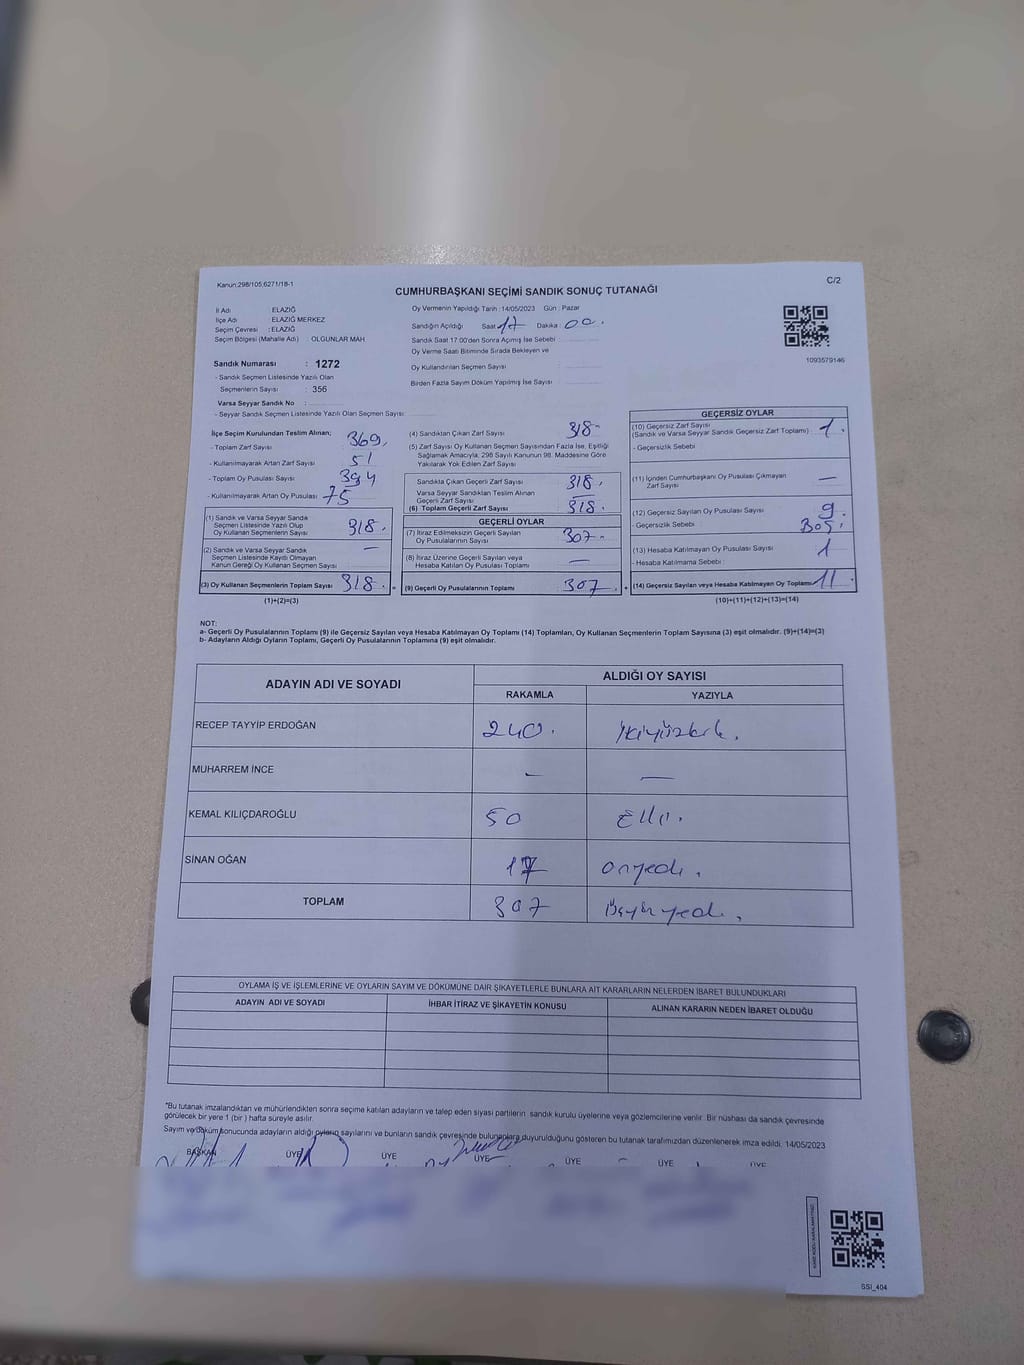 Kanun:298/105,6271/18-1
C/2
CUMHURBAŞKANI SEÇİMİ SANDIK SONUÇ TUTANAĞI
İl Adı : ELAZIĞ
İlçe Adı : ELAZIĞ MERKEZ
Seçim Çevresi : ELAZIĞ
Seçim Bölgesi (Mahalle Adı) : OLGUNLAR MAH
Sandık Numarası : 1272
- Sandık Seçmen Listesinde Yazılı Olan
Seçmenlerin Sayısı : 356
Varsa Seyyar Sandık No :
- Seyyar Sandık Seçmen Listesinde Yazılı Olan Seçmen Sayısı:
Oy Vermenin Yapıldığı Tarih : 14/05/2023 Gün : Pazar
Sandığın Açıldığı Saat 17 Dakika : 00.
Sandık Saat 17:00'den Sonra Açılmış İse Sebebi :
Oy Verme Saati Bitiminde Sırada Bekleyen ve
Oy Kullandırılan Seçmen Sayısı
Birden Fazla Sayım Döküm Yapılmış İse Sayısı
1093579146
İlçe Seçim Kurulundan Teslim Alınan;
- Toplam Zarf Sayısı 369.
- Kullanılmayarak Artan Zarf Sayısı 51
- Toplam Oy Pusulası Sayısı 394
- Kullanılmayarak Artan Oy Pusulası 75
(1) Sandık ve Varsa Seyyar Sandık
Seçmen Listesinde Yazılı Olup
Oy Kullanan Seçmenlerin Sayısı 318.
(2) Sandık ve Varsa Seyyar Sandık
Seçmen Listesinde Kayıtlı Olmayan
Kanun Gereği Oy Kullanan Seçmen Sayısı —
(3) Oy Kullanan Seçmenlerin Toplam Sayısı 318. =
(1)+(2)=(3)
(4) Sandıktan Çıkan Zarf Sayısı 318
(5) Zarf Sayısı Oy Kullanan Seçmen Sayısından Fazla İse, Eşitliği
Sağlamak Amacıyla, 298 Sayılı Kanunun 98. Maddesine Göre
Yakılarak Yok Edilen Zarf Sayısı
Sandıkla Çıkan Geçerli Zarf Sayısı 318.
Varsa Seyyar Sandıktan Teslim Alınan
Geçerli Zarf Sayısı —
(6) Toplam Geçerli Zarf Sayısı 318.
GEÇERLİ OYLAR
(7) İtiraz Edilmeksizin Geçerli Sayılan
Oy Pusulalarının Sayısı 307
(8) İtiraz Üzerine Geçerli Sayılan veya
Hesaba Katılan Oy Pusulaları Toplamı —
(9) Geçerli Oy Pusulalarının Toplamı 307. +
GEÇERSİZ OYLAR
(10) Geçersiz Zarf Sayısı
(Sandık ve Varsa Seyyar Sandık Geçersiz Zarf Toplamı) 1.
- Geçersizlik Sebebi
(11) İçinden Cumhurbaşkanı Oy Pusulası Çıkmayan
Zarf Sayısı —
(12) Geçersiz Sayılan Oy Pusulası Sayısı 9.
- Geçersizlik Sebebi :
(13) Hesaba Katılmayan Oy Pusulası Sayısı 1
- Hesaba Katılmama Sebebi :
(14) Geçersiz Sayılan veya Hesaba Katılmayan Oy Toplamı 11.
(10)+(11)+(12)+(13)=(14)
NOT:
a- Geçerli Oy Pusulalarının Toplamı (9) ile Geçersiz Sayılan veya Hesaba Katılmayan Oy Toplamı (14) Toplamları, Oy Kullanan Seçmenlerin Toplam Sayısına (3) eşit olmalıdır. (9)+(14)=(3)
b- Adayların Aldığı Oyların Toplamı, Geçerli Oy Pusulalarının Toplamına (9) eşit olmalıdır.
ADAYIN ADI VE SOYADI
ALDIĞI OY SAYISI
RAKAMLA YAZIYLA
RECEP TAYYİP ERDOĞAN 240. ikiyüzkırk.
MUHARREM İNCE — —
KEMAL KILIÇDAROĞLU 50 Elli.
SİNAN OĞAN 17 onyedi.
TOPLAM 307 üçyüzyedi.
OYLAMA İŞ VE İŞLEMLERİNE VE OYLARIN SAYIM VE DÖKÜMÜNE DAİR ŞİKAYETLERLE BUNLARA AİT KARARLARIN NELERDEN İBARET BULUNDUKLARI
ADAYIN ADI VE SOYADI İHBAR İTİRAZ VE ŞİKAYETİN KONUSU ALINAN KARARIN NEDEN İBARET OLDUĞU
*Bu tutanak imzalandıktan ve mühürlendikten sonra seçime katılan adayların ve talep eden siyasi partilerin sandık kurulu üyelerine veya gözlemcilerine verilir. Bir nüshası da sandık çevresinde
görülecek bir yere 1 (bir ) hafta süreyle asılır.
Sayım ve döküm sonucunda adayların aldığı oyların sayılarını ve bunların sandık çevresinde bulunanlara duyurulduğunu gösteren bu tutanak tarafımızdan düzenlenerek imza edildi. 14/05/2023
BAŞKAN ÜYE ÜYE ÜYE ÜYE ÜYE ÜYE
SSI_404